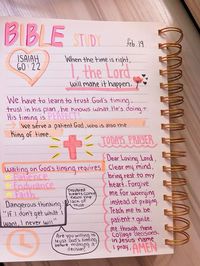 BIBLE STUDY
Feb. 19
ISAIAH
60:22
When the time is right,
I, the Lord
will make it happen.
We have to learn to trust God's timing,
trust in his plan, he knows what He's doing +
His timing is PERFECT!
We serve a patient God, who is also the
King of time.
TODAY'S PRAYER
Waiting on God's timing requires
Patience
Endurance
Faith
Dangerous thinking
"if I don't get what I
want, I never will"
Are you willing to
trust God's timing
before making a
decision?
Dear Loving Lord,
Clear my mind,
bring rest to my
heart. Forgive
me for worrying
instead of praying
Teach me to be
patient + quite
me through these
College decisions,
in Jesus name
I pray
AMEN